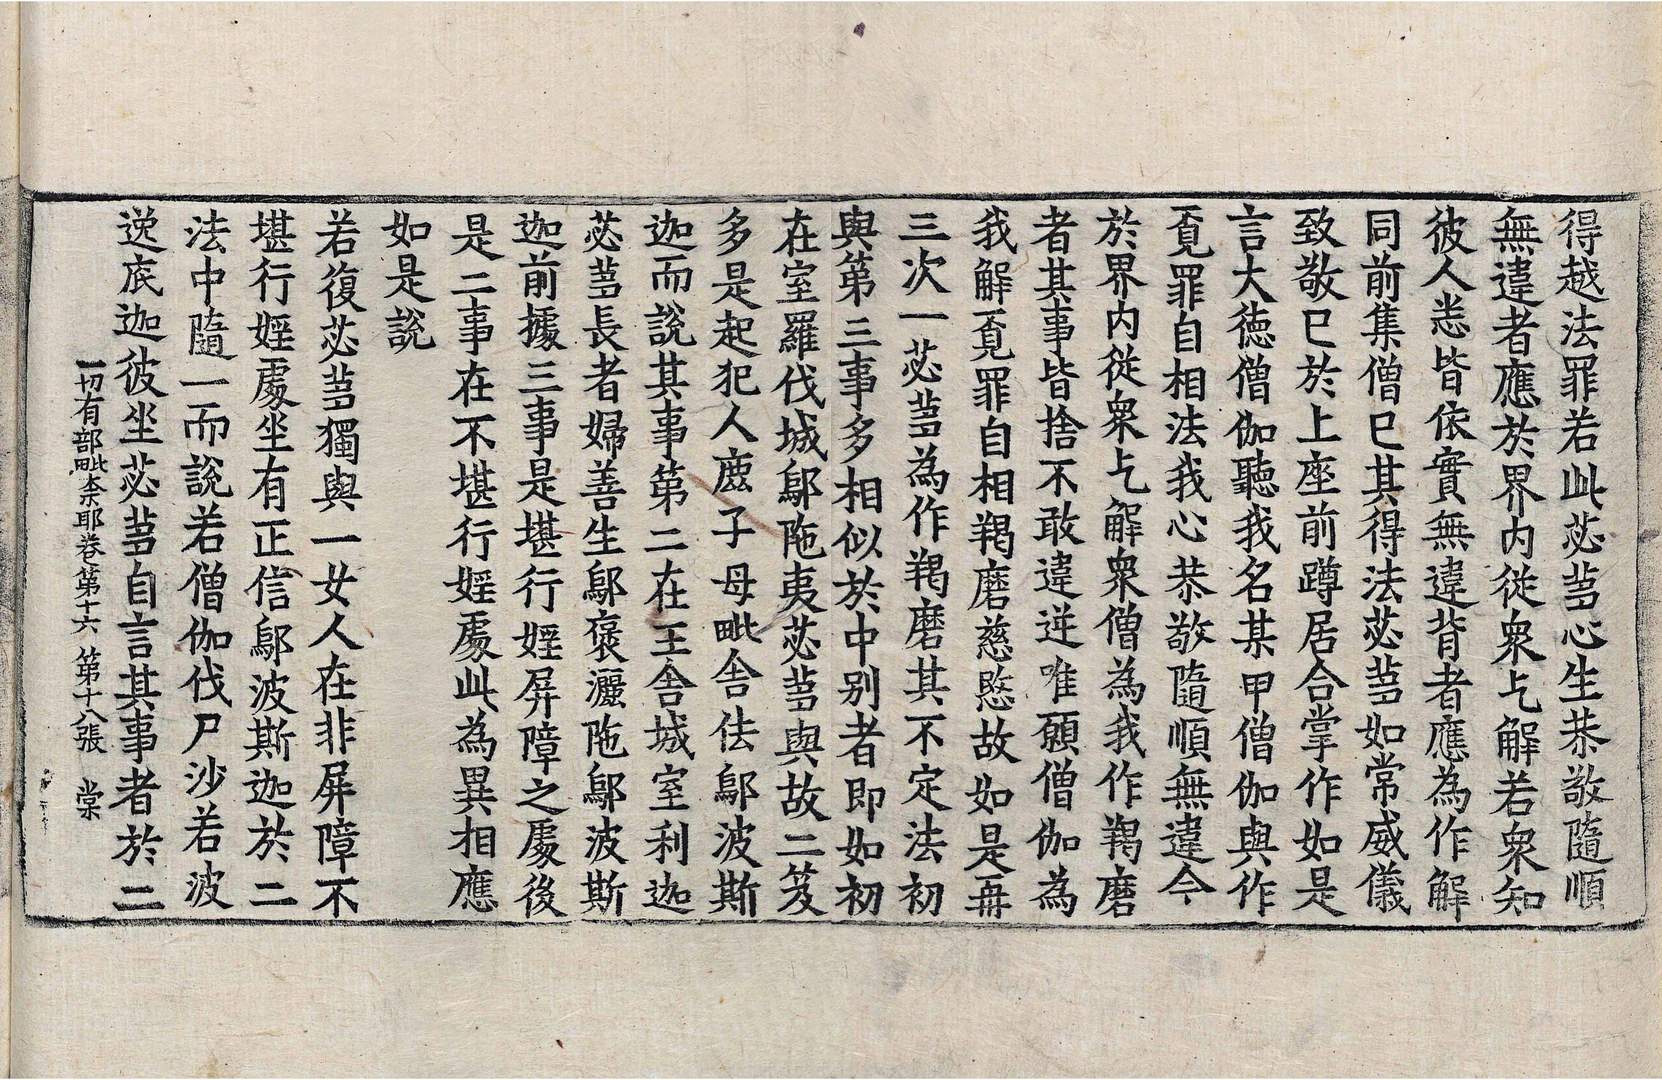 得越法罪若此苾芻心生恭敬隨順
無違者應於界内従衆乞解若衆知
彼人悉皆依實無違背者應為作解
同前集僧已其得法苾芻如常威儀
致敬已於上座前蹲居合掌作如是
言大徳僧伽聽我名某甲僧伽與作
覓罪自相法我心恭敬隨順無違今
於界内従衆乞解衆僧為我作羯磨
者其事皆捨不敢違逆唯願僧伽為
我解覓罪自相羯磨慈愍故如是再
三次一苾芻為作羯磨其不定法初
與第三事多相似於中别者即如初
在室羅伐城鄔陁夷苾芻與故二笈
多是起犯人鹿子母毗舍佉鄔波斯
迦而説其事第二在王舍城室利迦
苾芻長者婦善生鄔褒灑陁鄔波斯
迦前據三事是堪行婬屏障之處後
是二事在不堪行婬處此為異相應
如是説
若復苾芻獨與一女人在非屏障不
堪行婬處坐有正信鄔波斯迦於二
法中隨一而説若僧伽伐尸沙若波
逸底迦彼坐苾芻自言其事者於二
一切有部毗柰耶卷第十六　第十八張　棠